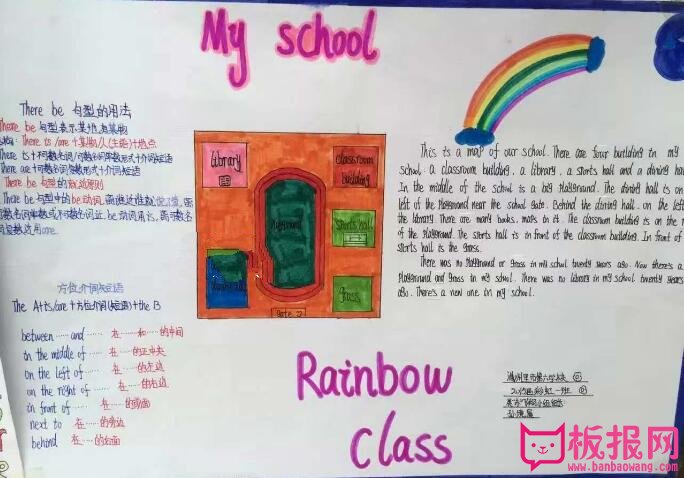 My school
There be 句型的用法
There be 句型表示某地有某物
There is /are +某物/人(主语)+地点
There is +不可数名词/可数名词单数形式+介词短语
There are +可数名词复数形式+介词短语
There be 句型的就近原则
There be 句型中的be动词
可数名词单数或不可数名词近.be动词用is.
复数这用are.
方位介词短语
The A+is/are +方位介词(短语)+the B
between ······ and ······ 在 ······ 和 ······ 的中间
in the middle of ······ 在 ······ 的正中央
on the left of ······ 在 ······ 的左边
on the right of ······ 在 ······ 的右边
in front of ······ 在 ······ 的前面
next to 在 ······ 的旁边
behind 在 ······ 的后面
library
classroom
building
playground
sports hall
grass
gate
This is a map of our school. There are four building in my
school. a classroom building. a library. a sports hall and a dining ha
In the middle of the school is a big playground. The dining hall is on
left of the playground near the school gate. Behind the dining hall. on the left
the library. There are many books. in it. The classroom building is on the r
of the playground. The sports hall is in front of the classroom building. In front of
sports hall is the grass.
There was no playground or grass in my school twenty years ago. Now there's a
playground and grass in my school. There was no library in my school twenty years
ago. There's a new one in my school.
Rainbow
class
板报网
www.banbaowang.com